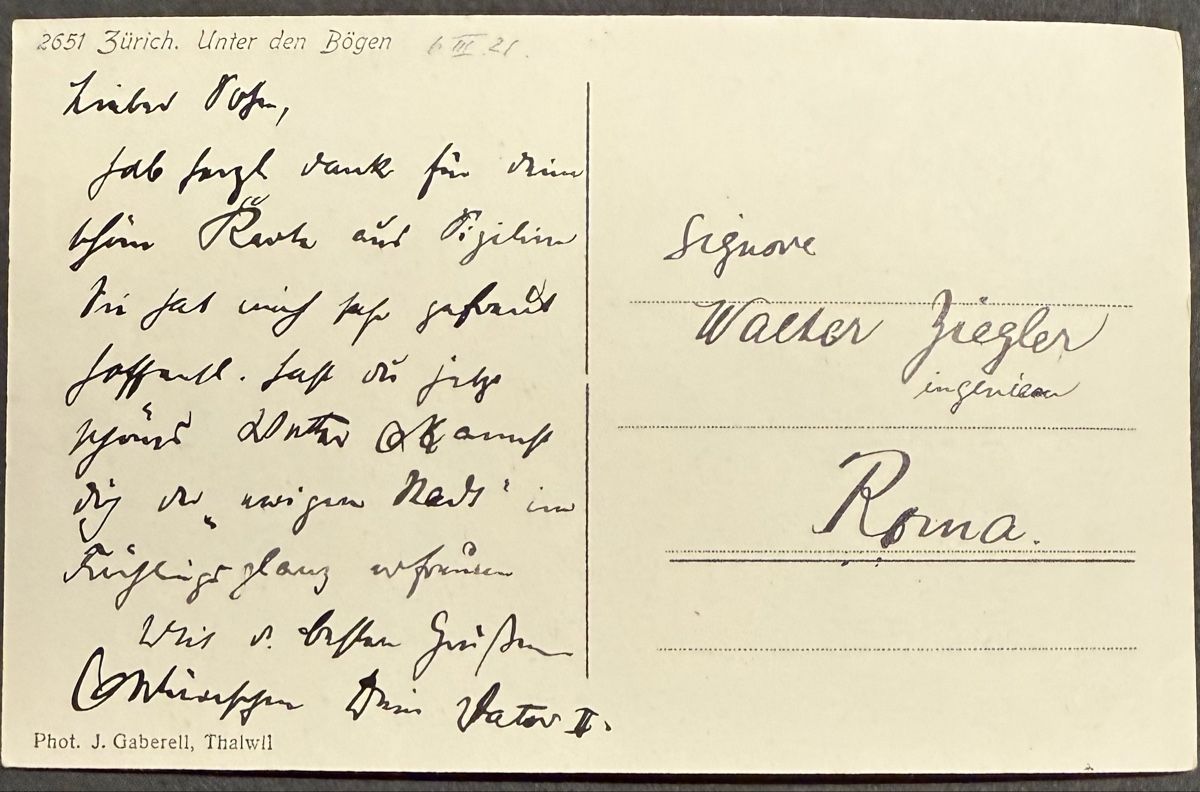 2651 Zürich. Unter den Bögen 6 III. 21.
Lieber Sohn,
hab herzl dank für deine
schöne Karte aus Sizilien
Sie hat mich sehr gefreut
hoffentl. hast du jetzt
schönes Wetter & kannst
dich der „ewigen Stadt" im
Frühlingsglanz erfreuen
Mit d. besten Grüßen
& Wünschen Dein Vater II.
Phot. J. Gaberell, Thalwil
Signore
Walter Ziegler
Roma.